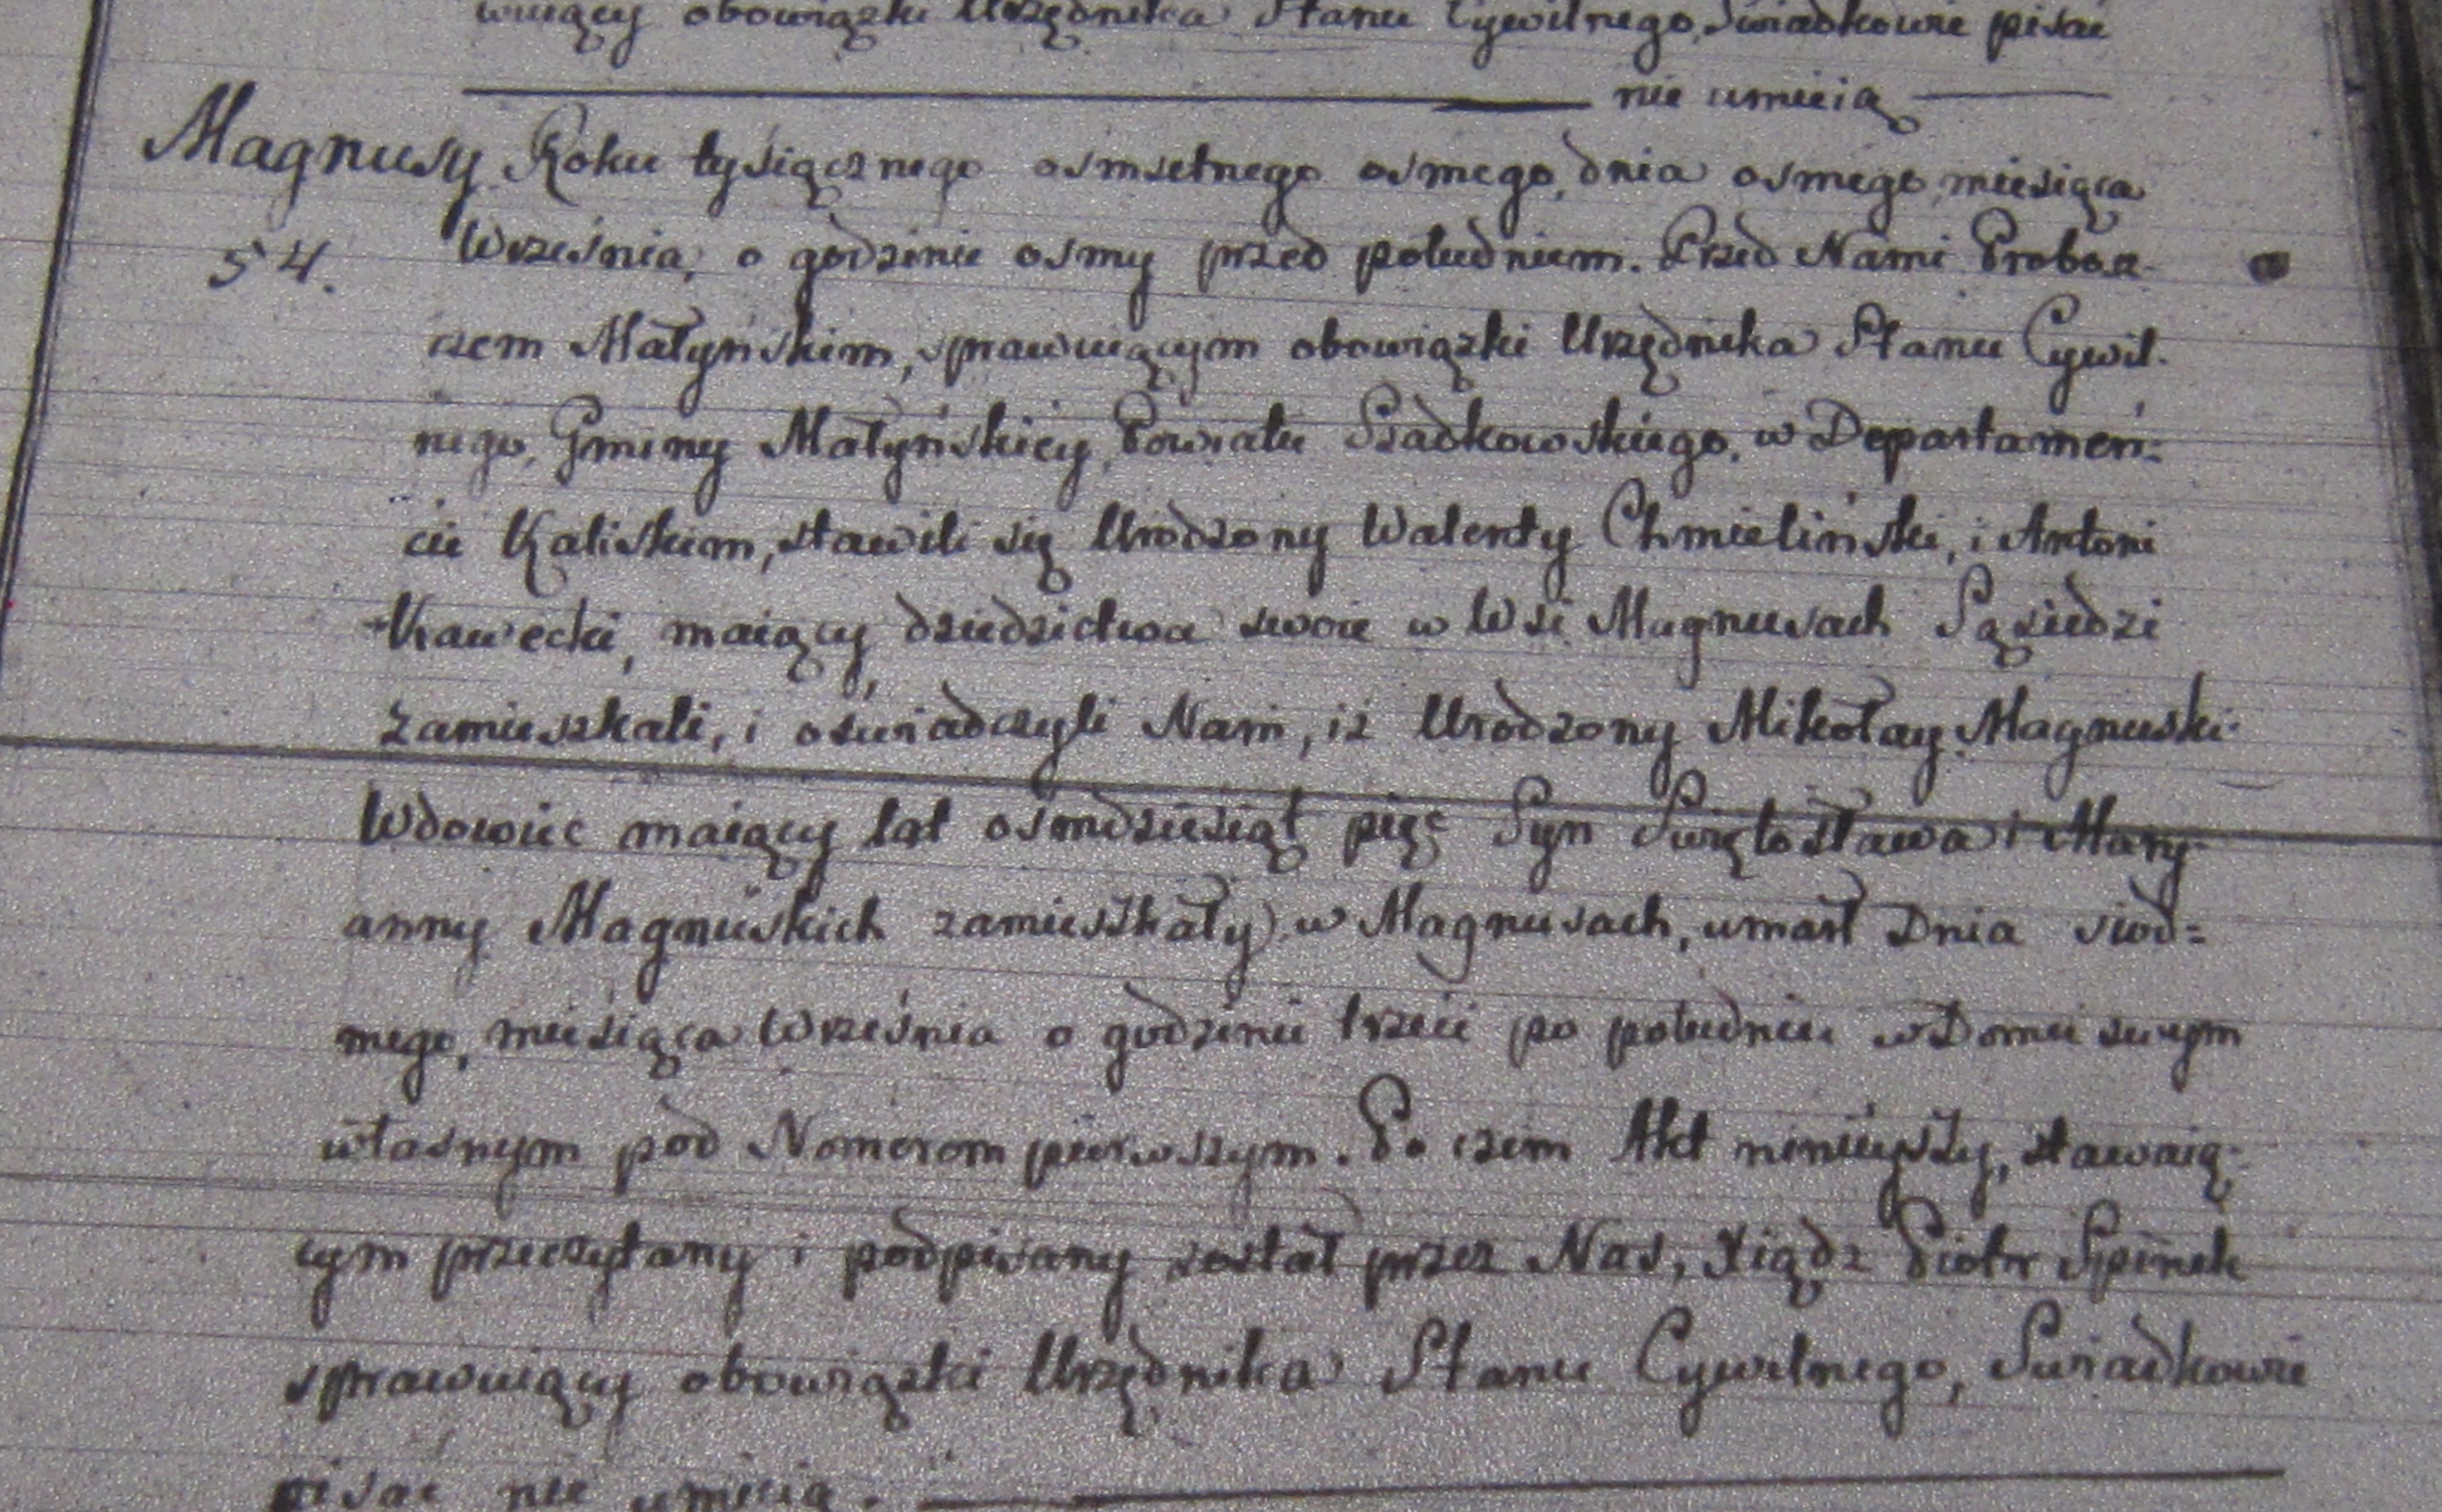 wuiący obowiązki Urzędnika Stanu Cywilnego, Swiadkowie pisać
nie umieią
Magnusy Roku tysiącznego osmsetnego osmego, dnia osmego miesiąca
54. Września, o godzinie osmy przed południem. Przed Nami Probosz-
czem Małyńskim, sprawuiącym obowiązki Urzędnika Stanu Cywil-
nego, Gminy Małyńskiey, Powiatu Szadkowskiego, w Departamen:
cie Kaliskim, stawili się Urodzony Walenty Chmieliński, i Antoni
Kawecki, maiący dziedzictwa swoie w Wsi Magnusach Sąsiedzi
zamieszkali, i oświadczyli Nam, iż Urodzony Mikołay Magnuski
Wdowiec maiący lat ośmdziesiąt pięć Syn Swiętosława i Mary-
anny Magnuskich zamieszkały w Magnusach, umarł Dnia siod=
mego, miesiąca Września o godzinie trzeci po południu w Domu swym
własnym pod Nomerom pierwszym. Po czem Akt ninieyszy, stawaią-
cym przeczytany i podpisany został przez Nas, Xiądz Piotr Spinek
sprawuiący obowiązki Urzędnika Stanu Cywilnego, Swiadkowie
pisać nie umieią.